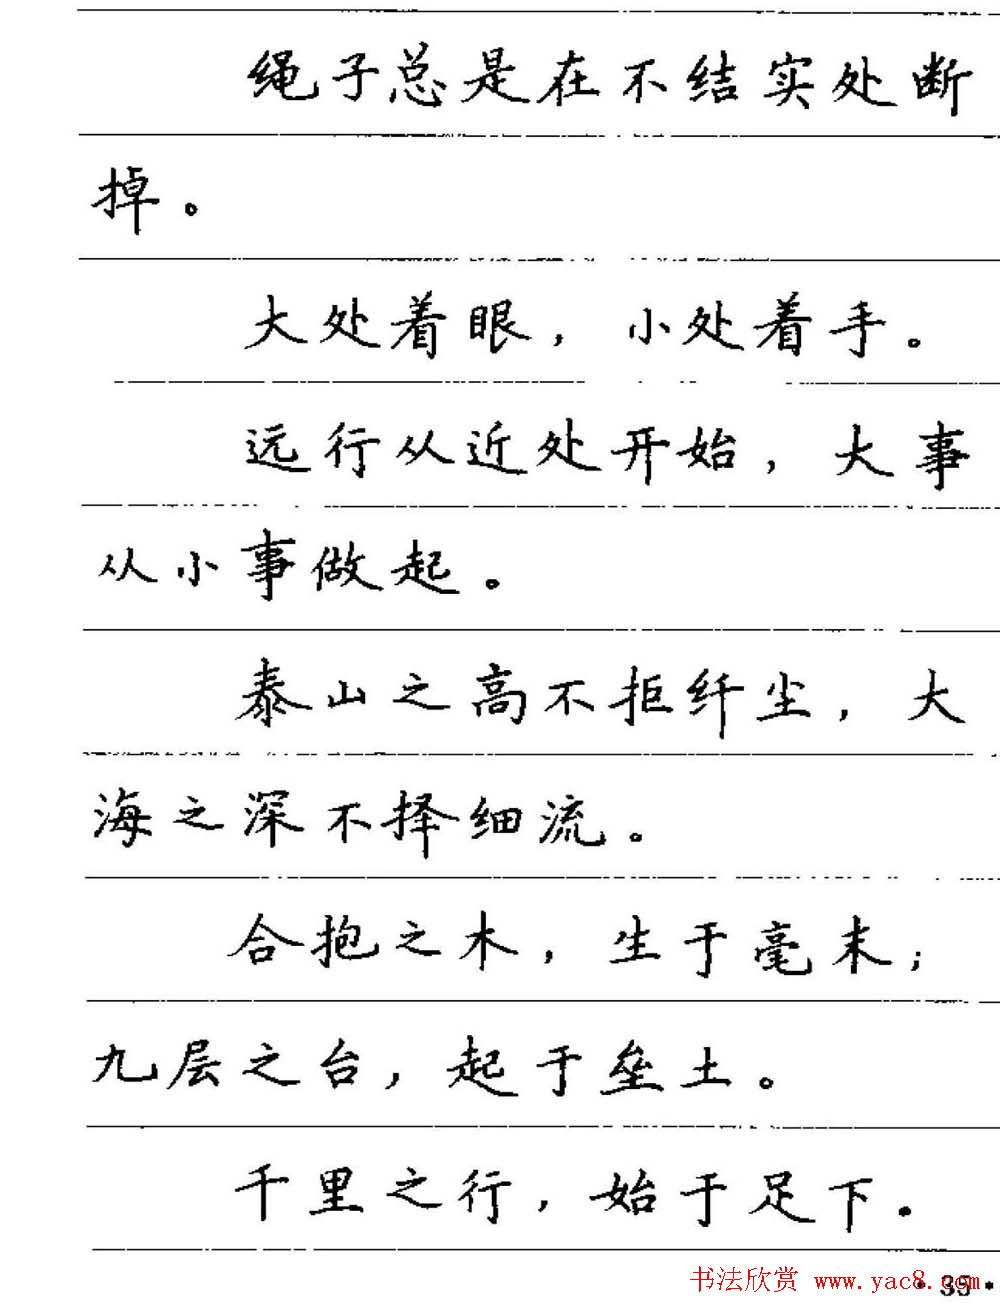 绳子总是在不结实处断
掉。
大处着眼，小处着手。
远行从近处开始，大事
从小事做起。
泰山之高不拒纤尘，大
海之深不择细流。
合抱之木，生于毫末；
九层之台，起于垒土。
千里之行，始于足下。
书法欣赏 www.yac8.com
·35·